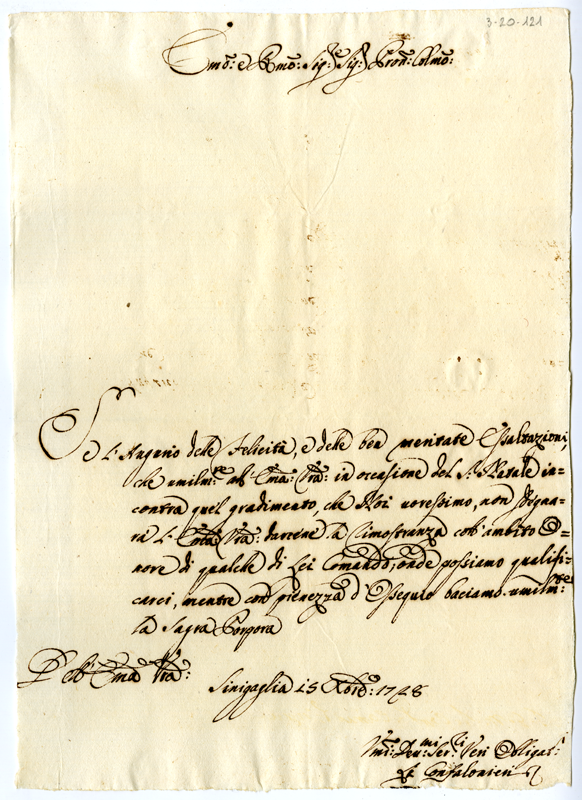 3-20-121
Emo: e Rmo: Sig:re Sig:re Pron: Colmo:
Se l'Augurio delle Felicità, e delle ben meritate Esaltazioni,
che umilm:te all' Ema: Vra: in occasione del S: Natale in=
contra quel gradimento, che Noi voressimo, non sdegna=
rà l' Ema Vra: darcene la dimostranza coll'ambito O=
nore di qualche di Lei Comando, onde possiamo qualifi=
carci, mentre con pienezza d'Ossequio baciamo umilm:te
la Sagra Porpora
Dell' Ema Vra:
Sinigaglia 15 Xbre: 1728
Umi: Dev:mi Ser:ri Veri Obligat:
Gonfalonieri